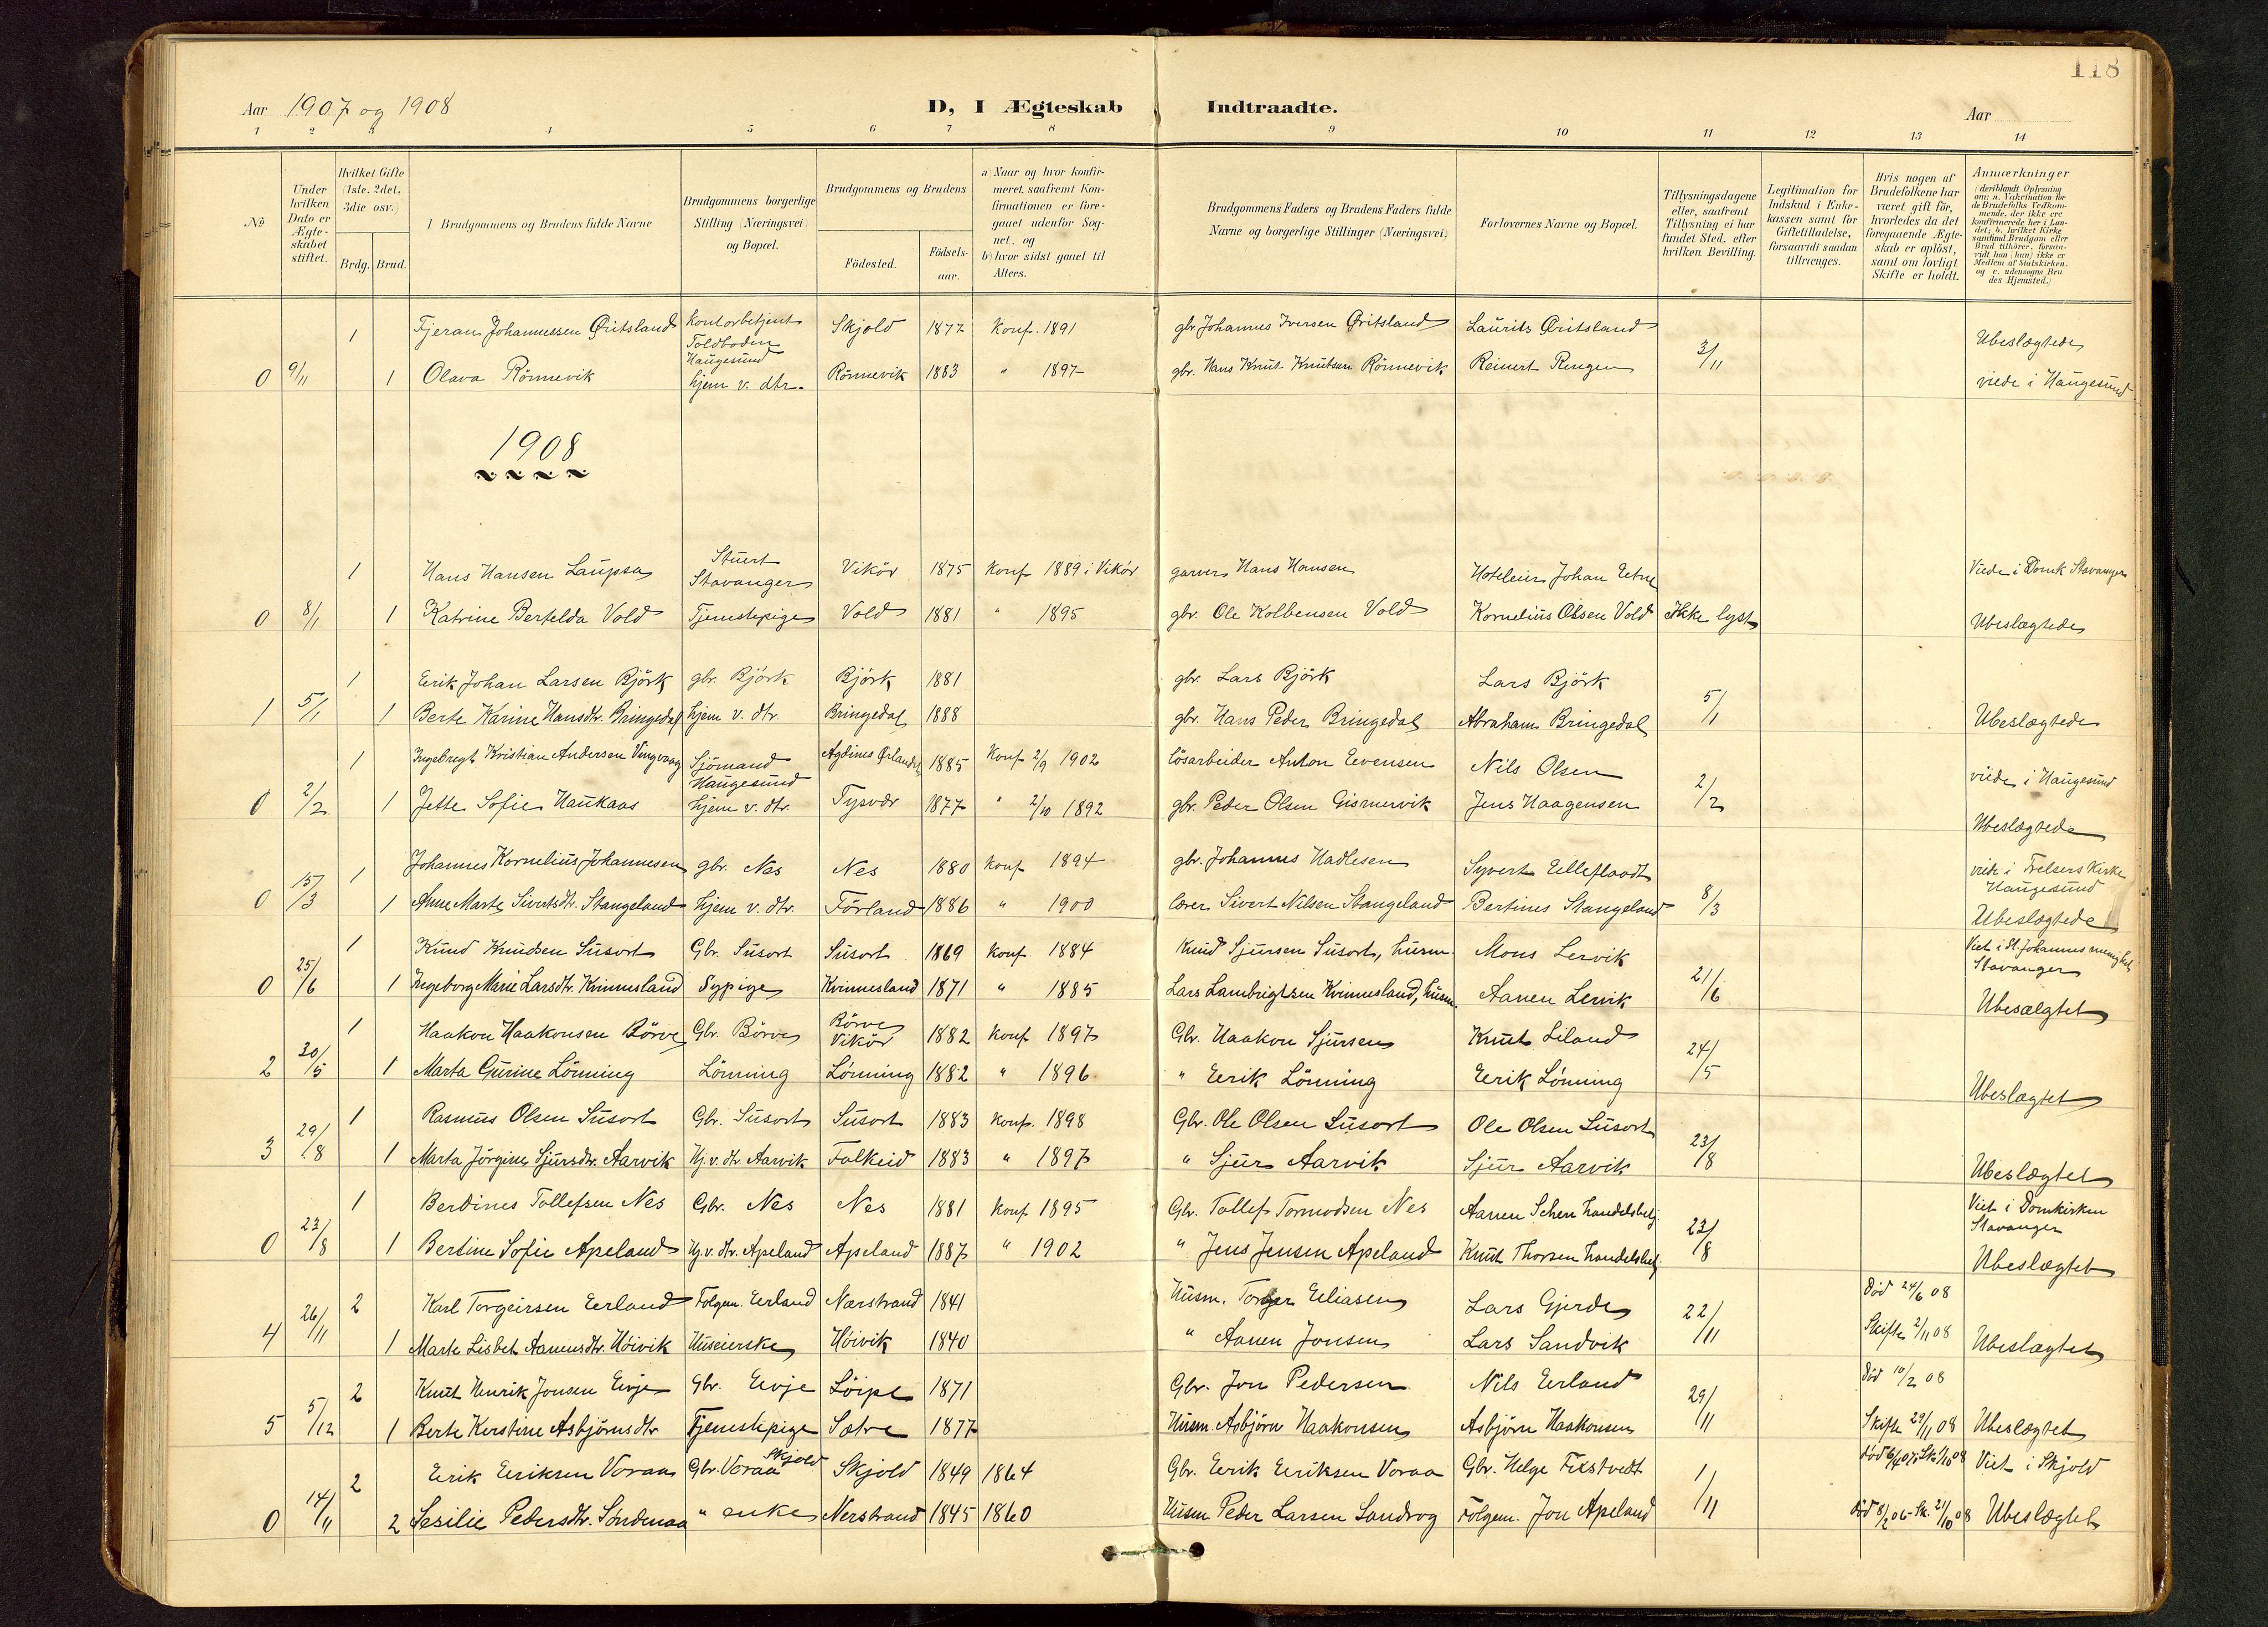 118
Aar 1907 og 1908 D, I Ægteskab Indtraadte. Aar
1 2 3 4 5 6 7 8 9 10 11 12 13 14
No
Under hvilken Dato er Ægteskabet stiftet.
Hvilket Gifte (1ste. 2det. 3die osv.)
Brdg. Brud.
1 Brudgommens og Brudens fulde Navne
Brudgommens borgerlige Stilling (Næringsvei) og Bopæl.
Brudgommens og Brudens
Födested.
Födselsaar.
a) Naar og hvor konfirmeret, saafremt Konfirmationen er foregaaet udenfor Sognet, og
b) hvor sidst gaaet til Alters.
Brudgommens Faders og Brudens Faders fulde Navne og borgerlige Stillinger (Næringsvei)
Forlovernes Navne og Bopæl.
Tillysningsdagene eller, saafremt Tillysning ei har fundet Sted, efter hvilken Bevilling.
Legitimation for Indskud i Enkekassen samt for Giftetilladelse, forsaavidt saadan tiltrænges.
Hvis nogen af Brudefolkene har været gift för, hvorledes da det foregaaende Ægteskab er oplöst, samt om lovligt Skifte er holdt.
Anmærkninger (deriblandt Oplysning om: a. Vakcination for de Brudefolks Vedkommende, der ikke ere konfirmerede her i Landet; b. hvilket Kirkesamfund Brudgom eller Brud tilhörer, forsaavidt han (hun) ikke er Medlem af Statskirken. og c. udensogns Brudes Hjemsted.)
1 Tjeran Johannessen Øritsland Kontorbetjent Toldboden Haugesund Skjold 1872 Konf. 1891 gbr Johannes Iversen Øritsland Laurits Øritsland 3/11 Ubeslægtede
0 9/11 1 Olava Rönnevik hjem v. dtr. Rönnevik 1883 " 1897 gbr. Hans Knut Knutsen Rönnevik Reinert Rengen viede i Haugesund
1908
1 Hans Hansen Laupsa Stuert Stavanger Vikör 1875 Konf 1889 i Vikör garver Hans Hansen Hoteleier Johan Etne Viede i Domk Stavanger
0 8/1 1 Katrine Bertelda Vold Tjenestepige Vold 1881 " 1895 gbr. Ole Kolbensen Vold Kornelius Olsen Vold Ikke lyst Ubeslægtede
1 Eerik Johan Larsen Björk gbr. Björk Björk 1881 gbr. Lars Björk Lars Björk 5/1
1 5/1 1 Berte Karine Hansdtr. Bringedal hjem v. dtr. Bringedal 1888 gbr. Hans Peder Bringedal Abraham Bringedal Ubeslægtede
1 Ingebregt Kristian Andersen Vingvaag Sjömand Haugesund Agdines Ørlandet 1885 Konf 2/9 1902 lösarbeider Anton Evensen Nils Olsen 2/2 viede i Haugesund
0 2/2 1 Jette Sofie Haukaas hjem v. dtr. Tysvær 1877 " 2/10 1892 gbr. Peder Olsen Gismervik Jens Haagensen Ubeslægtede
1 Johannes Kornelius Johannesen gbr. Nes Nes 1880 Konf 1894 gbr. Johannes Hadlesen Syvert Eilleflaadt 8/3 viede i Frelsers Kirke Haugesund
0 15/3 1 Anne Marte Sivertsdtr. Stangeland hjem v. dtr. Förland 1886 " 1900 lærer Sivert Nilsen Stangeland Bertines Stangeland Ubeslægtede
1 Knud Knudsen Susort Gbr. Susort Susort 1869 Konf 1884 Knud Sjursen Susort, husm. Mons Lervik 21/6 Viet i St. Johannes menighet Stavanger
0 25/6 1 Ingeborg Marie Larsdtr. Kvinnesland Sypige Kvinnesland 1871 " 1885 Lars Lambrigtsen Kvinnesland, husm. Aanen Lervik Ubesælgtet
1 Haakon Haakonsen Börve Gbr. Börve Börve Vikör 1882 Konf 1897 Gbr. Haakon Sjursen Knut Liland 24/5
2 30/5 1 Marta Gurine Lönning Lönning Lönning 1882 " 1896 " Eerik Lönning Eerik Lönning Ubeslægtet
1 Rasmus Olsen Susort Gbr. Susort Susort 1883 Konf. 1898 Gbr. Ole Olsen Susort Ole Olsen Susort 23/8
3 29/8 1 Marta Jörgine Sjursdtr. Aarvik Hj. v. dtr. Aarvik Falkeid 1883 " 1897 " Sjur Aarvik Sjur Aarvik Ubeslægtet
1 Berdines Tollefsen Nes Gbr. Nes Nes 1881 Konf 1895 Gbr. Tollef Tormodsen Nes Aanen Schen handelsbetj. 23/8 Viet i Domkirken Stavanger
0 23/8 1 Bertine Sofie Apeland Hj. v. dtr. Apeland Apeland 1887 " 1902 " Jens Jensen Apeland Knut Thorsen handelsbetj Ubeslægtet
2 Karl Torgeirsen Eerland Folgem. Eerland Nærstrand 1841 Husm. Torger Eeliasen Lars Gjerde 22/11 Död 24/6 08
4 26/11 1 Marte Lisbet Aanensdtr. Höivik Huseierske Höivik 1840 " Aanen Jonsen Lars Sandvik Skifte 2/11 08 Ubeslægtet
2 Knut Henrik Jonsen Eevje Gbr. Eevje Löipe 1871 Gbr. Jon Pedersen Nils Eerland 29/11 Död 10/2 08
5 5/12 1 Berte Kerstine Asbjörnsdtr Tjenestepige Sætre 1877 Husm Asbjörn Haakonsen Asbjörn Haakonsen Skifte 29/11 08 Ubeslægtet
2 Eerik Eeriksen Voraa Gbr. Voraa Skjold Skjold 1849 1864 Gbr. Eerik Eeriksen Voraa Gbr. Helge Fixstvedt 1/11 Viet i Skjold
0 14/11 2 Sesilie Pedersdtr. Söndenaa " enke Nerstrand 1845 1860 Husm Peder Larsen Sandvog Folgem. Jon Apeland Död 8/2 06 - Sk. 21/10 08 Ubeslægtet